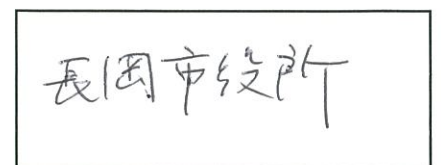 長岡市役所